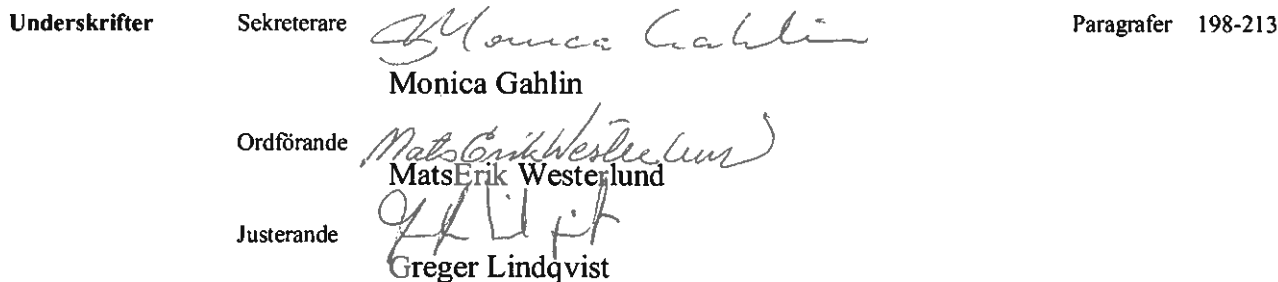 Underskrifter Sekreterare Monica Gahlin Paragrafer 198-213
Monica Gahlin
Ordförande MatsErik Westerlund
MatsErik Westerlund
Justerande
Greger Lindqvist